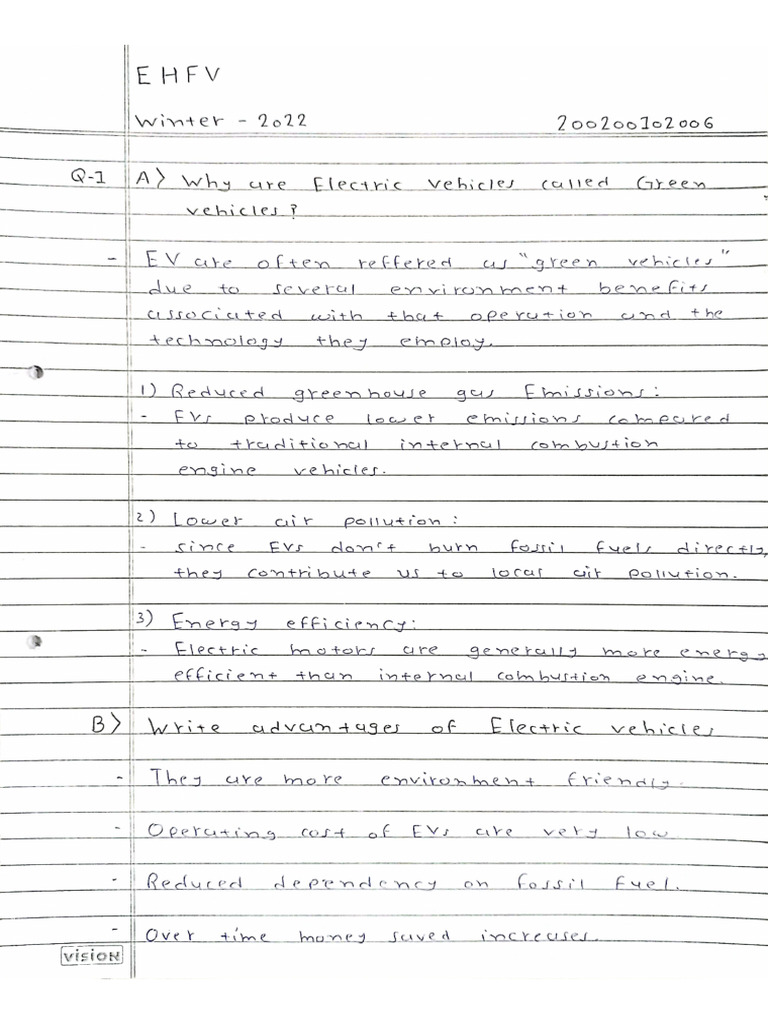 EHFV
Winter - 2022 200200102006
Q-1 A) Why are Electric vehicles called Green
vehicles?
- EV are often reffered as "green vehicles"
due to several environment benefits
associated with that operation and the
technology they employ.
1) Reduced greenhouse gas Emissions:
- EVs produce lower emissions compared
to traditional internal combustion
engine vehicles.
2) Lower air pollution:
- since EVs don't burn fossil fuels directly,
they contribute us to local air pollution.
3) Energy efficiency:
- Electric motors are generally more energy
efficient than internal combustion engine.
B) Write advantages of Electric vehicles
- They are more environment friendly.
- Operating cost of EVs are very low
- Reduced dependency on fossil fuel.
- Over time money saved increases.
VISION